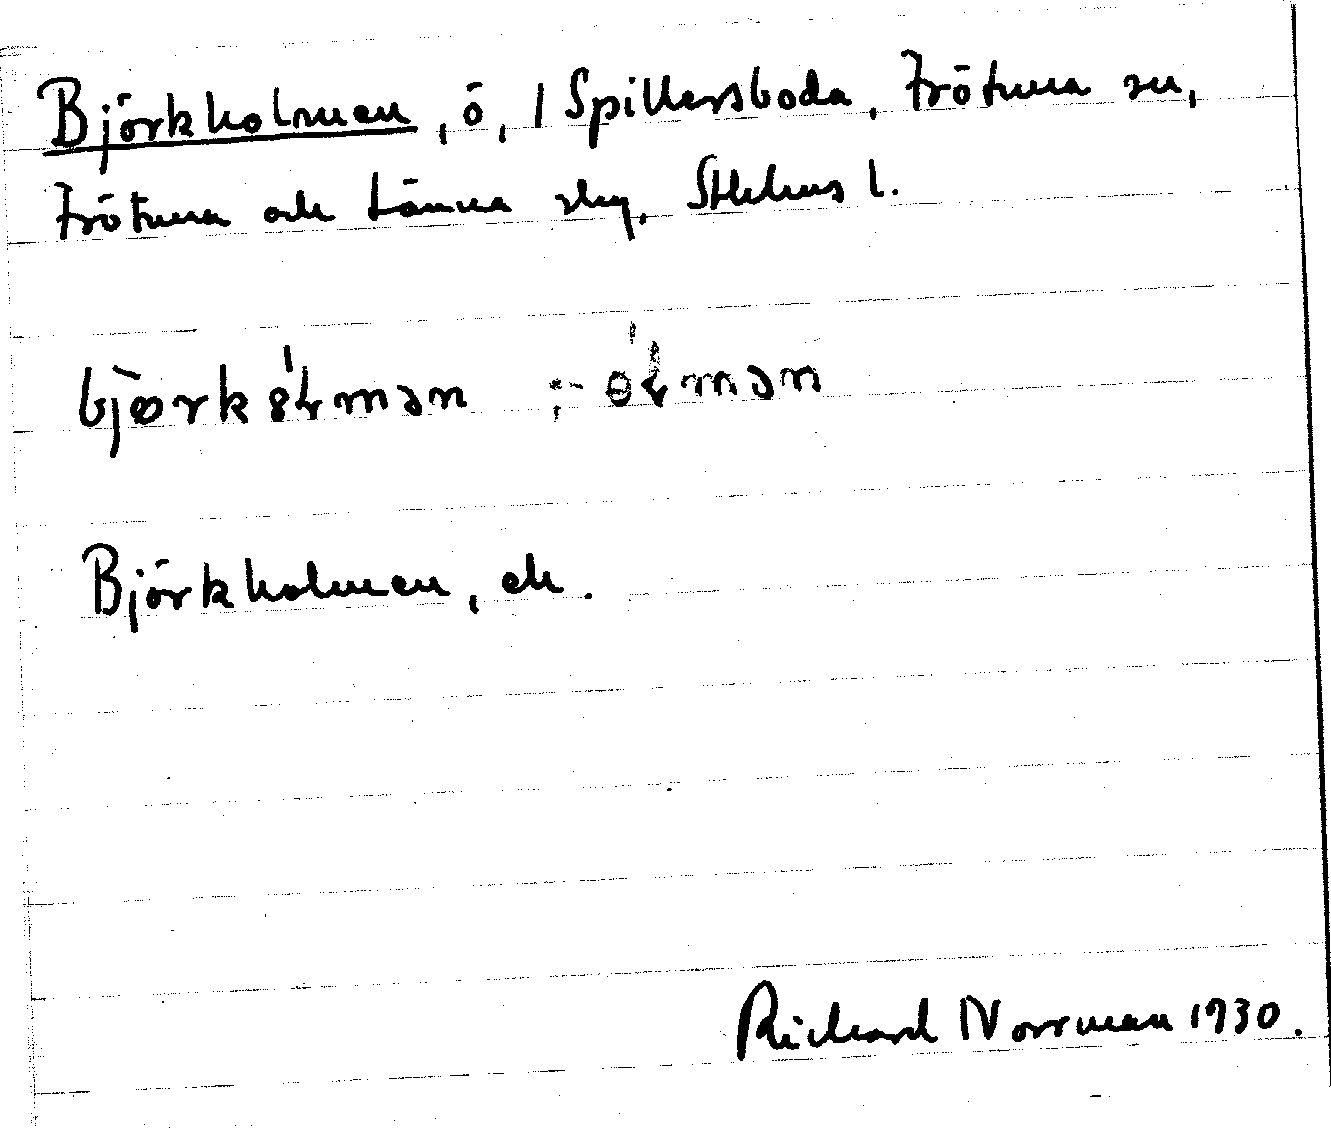 Björkholmen, ö, / Spillersboda, Frötuna sn,
Frötuna och Länna skg, Sthlms l.
bjørkɵ́ɫmən ; -ɵ́ɫmən
Björkholmen, ek.
Richard Norrman 1930.